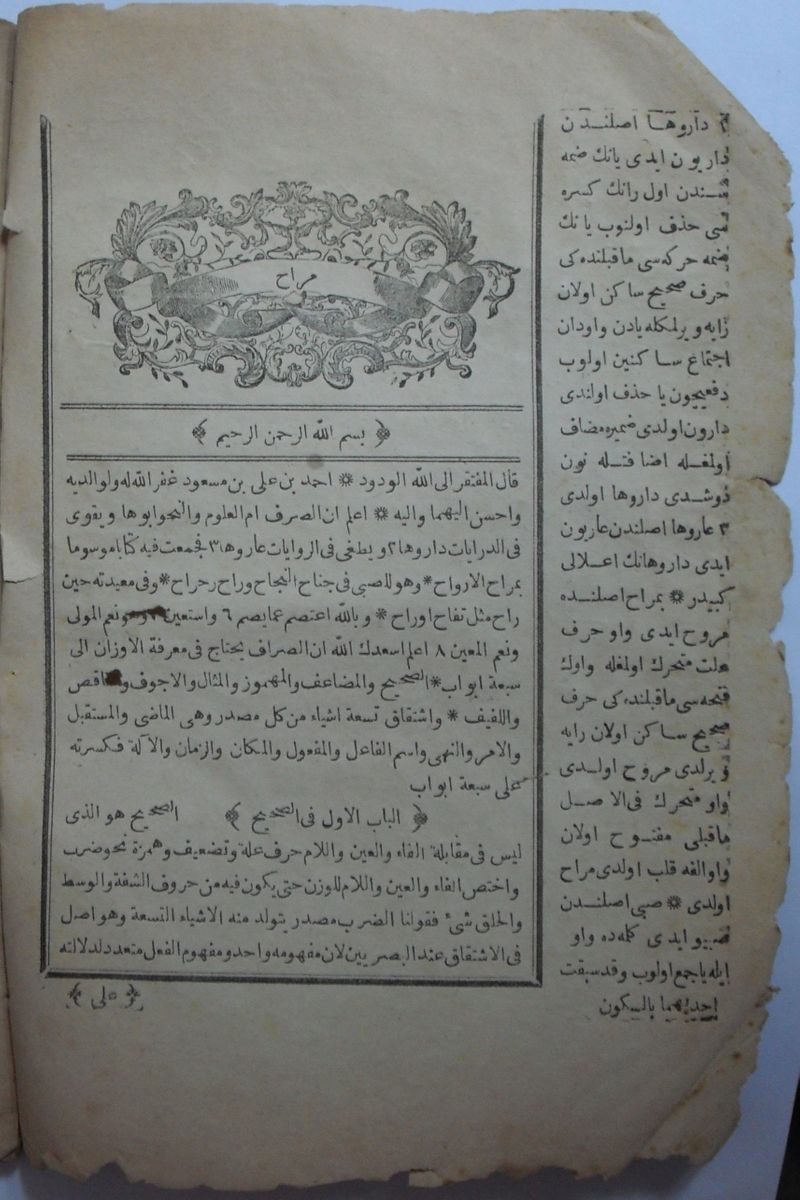 مراح
﴿ بسم الله الرحمن الرحيم ﴾
قال المفتقر الى الله الودود * احمد بن على بن مسعود غفر الله له ولوالديه
واحسن اليهما واليه * اعلم ان الصرف ام العلوم والنحو ابوها ويقوى
فى الدرايات داروها ٢ ويطغى فى الروايات عاروها ٣ فجمعت فيه كتابا موسوما
بمراح الارواح * وهو للصبى فى جناح النجاح وراح رحراح * وفى معدته حين
راح مثل تفاح اوراح * وبالله اعتصم عما يصم ٦ واستعين ونعم المولى
ونعم المعين ٨ اعلم اسعدك الله ان الصراف يحتاج فى معرفة الاوزان الى
سبعة ابواب * الصحيح والمضاعف والمهموز والمثال والاجوف والناقص
واللفيف * واشتقاق تسعة اشياء من كل مصدر وهى الماضى والمستقبل
والامر والنهى واسم الفاعل والمفعول والمكان والزمان والآلة فكسرته
على سبعة ابواب
﴿ الباب الاول فى الصحيح ﴾ الصحيح هو الذى
ليس فى مقابلة الفاء والعين واللام حرف علة وتضعيف وهمزة نحو ضرب
واختص الفاء والعين واللام للوزن حتى يكون فيه من حروف الشفة والوسط
والحلق شئ فقولنا الضرب مصدر يتولد منه الاشياء التسعة وهو اصل
فى الاشتقاق عند البصريين لان مفهومه واحد ومفهوم الفعل متعدد لدلالته
﴿ على ﴾
٢ داروها اصلندن
داريون ايدى يانك ضمه
سندن اول رانك كسره
سى حذف اولنوب يانك
ضمه حركه سى ماقبلنده كى
حرف صحيح ساكن اولان
رايه ويرلمكله يادن واودان
اجتماع ساكنين اولوب
دفعيچون يا حذف اولندى
دارون اولدى ضميره مضاف
اولمغله اضافتله نون
دوشدى داروها اولدى
٣ عاروها اصلندن عاريون
ايدى داروهانك اعلالى
كبيدر * بمراح اصلنده
مروح ايدى واو حرف
علت متحرك اولمغله واوك
فتحه سى ماقبلنده كى حرف
صحيح ساكن اولان رايه
ويرلدى مروح اولدى
واو متحرك فى الاصل
ماقبلى مفتوح اولان
واو الفه قلب اولدى مراح
اولدى * صبى اصلندن
صبيو ايدى كلمه ده واو
ايله يا جمع اولوب وقد سبقت
احديهما بالسكون